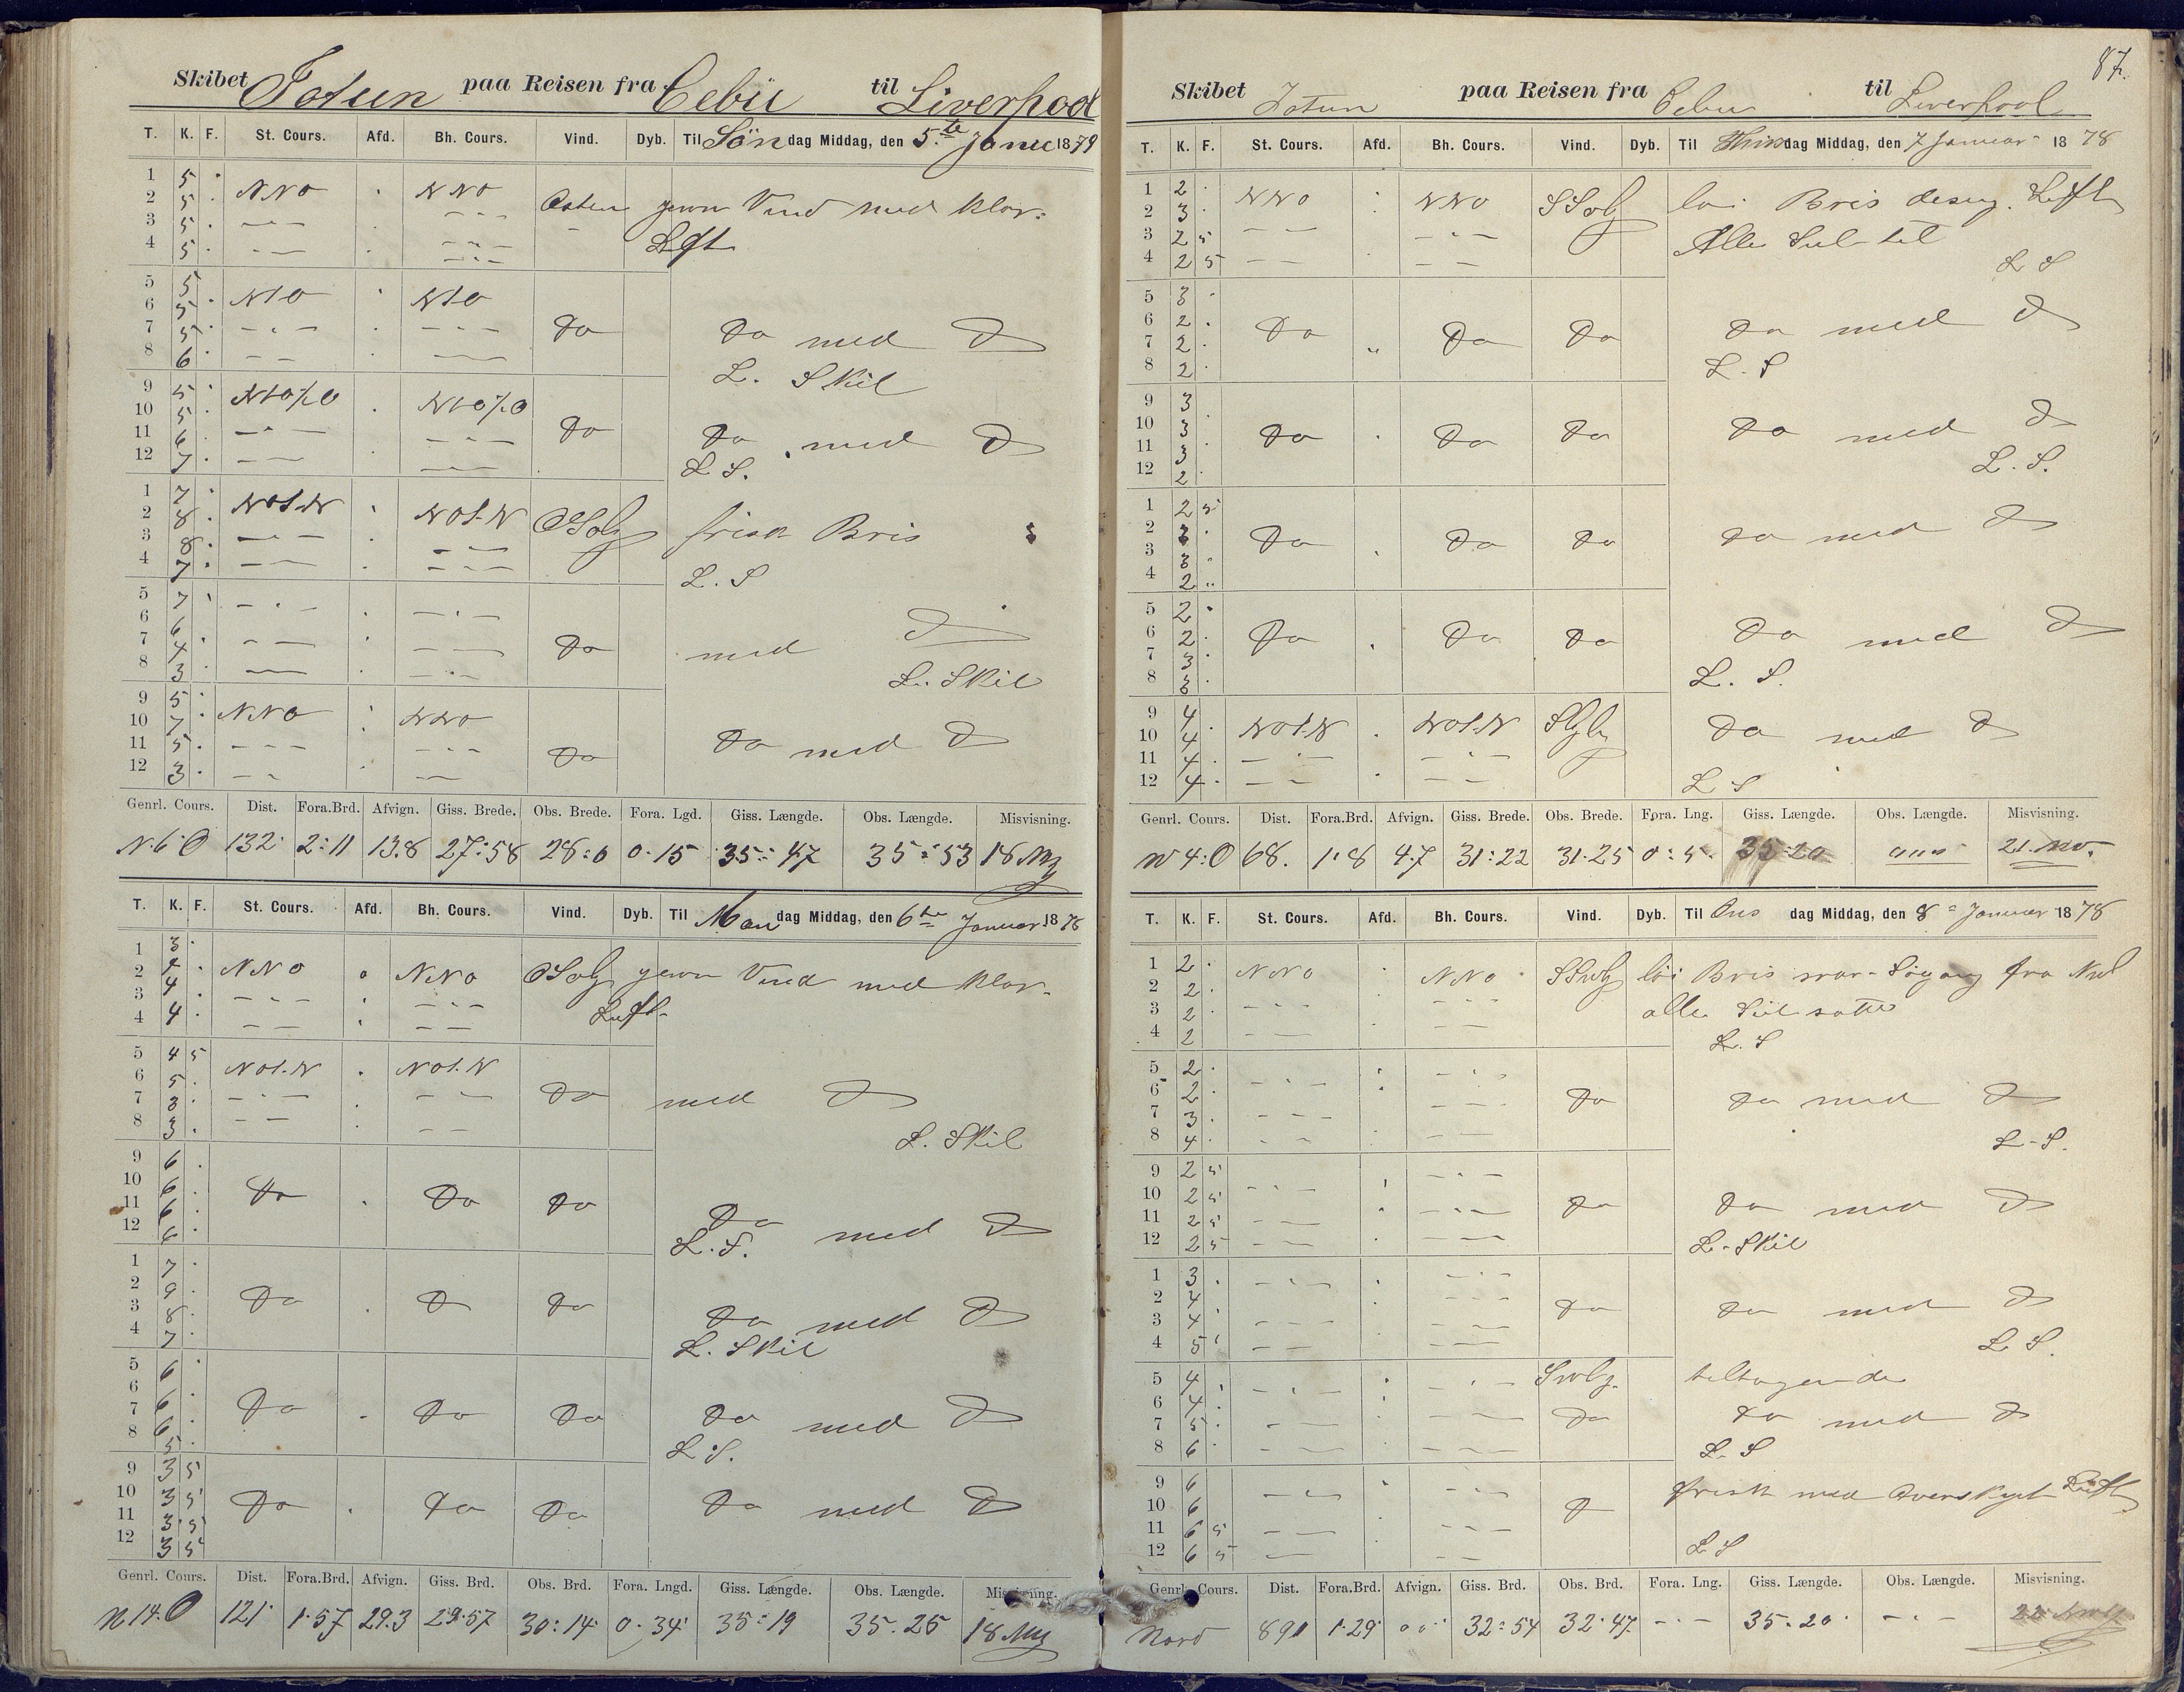 Skibet Jotun paa Reisen fra Cebu til Liverpool
T. K. F. St. Cours. Afd. Bh. Cours. Vind. Dyb. Til Søndag Middag, den 5te Janu 1879
1 5 NNO NNO Osten jevn Vind med klar
2 5
3 5 Luft
4 5
5 5 NtO NtO
6 5
7 5 Do Do med Do
8 6 L. Skil
9 5 NtO½O NtO½O
10 5
11 6 Do Do med Do
12 7 L. S.
1 7 NOt.N NOt.N OSO frisk Bris
2 8
3 8
4 7 L. S
5 7
6 6
7 4 Do med Do
8 3 L. Skil
9 5 NNO NNO
10 7
11 5 Do Do med Do
12 3
Genrl. Cours. Dist. Fora.Brd. Afvign. Giss. Brede. Obs. Brede. Fora. Lgd. Giss. Længde. Obs. Længde. Misvisning.
N.6.O 132 2:11 13.8 27:58 28:6 0.15 35:47 35:53 18
T. K. F. St. Cours. Afd. Bh. Cours. Vind. Dyb. Til Mandag Middag, den 6te Januar 1878
1 3 NNO NNO OSO jevn Vind med klar
2 4
3 4 Luft
4 4
5 4 5 NOt.N NOt.N
6 5
7 3 Do med Do
8 3 L. Skil
9 6
10 6 Do Do Do Do med Do
11 6 L. S.
12 6
1 7
2 9 Do Do Do Do med Do
3 8
4 7 L. Skil
5 6
6 6 Do Do Do Do med Do
7 6
8 5 L S.
9 3 5
10 3 5 Do Do Do Do med Do
11 3 5
12 3 5
Genrl. Cours. Dist. Fora.Brd. Afvign. Giss. Brd. Obs. Brd. Fora. Lngd. Giss. Længde. Obs. Længde. Misvisning.
N14.O 121 1.57 29.3 29:57 30:14 0.34 35:19 35.25 18
87.
Skibet Jotun paa Reisen fra Cebu til Liverpool
T. K. F. St. Cours. Afd. Bh. Cours. Vind. Dyb. Til Thirsdag Middag, den 7 Januar 1878
1 2 NNO NNO SSO løi Bris desig. Luft
2 3
3 2 5 Alle Seil til
4 2 5 L S
5 3
6 2 Do Do Do Do med Do
7 2
8 2 L. S
9 3
10 3 Do Do Do Do med Do
11 3
12 2 L. S.
1 2 5
2 3 Do Do Do Do med Do
3 3
4 2
5 2
6 2 Do Do Do Do med Do
7 3
8 3 L. S.
9 4 NOt.N NOt.N Do med Do
10 4
11 4
12 4 L S
Genrl. Cours. Dist. Fora.Brd. Afvign. Giss. Brede. Obs. Brede. Fora. Lng. Giss. Længde. Obs. Længde. Misvisning.
N 4.O 68. 1.8 4.7 31:22 31.25 0:5 35:20 21.
T. K. F. St. Cours. Afd. Bh. Cours. Vind. Dyb. Til Onsdag Middag, den 8 Januar 1878
1 2 NNO NNO løi Bris svar Søgang fra
2 2
3 2 alle Seil satte
4 2 L. S
5 2
6 2 Do Do med Do
7 3
8 4 L-S.
9 2 5
10 2 5 Do Do med Do
11 2 5
12 2 5 L. Skil
1 3
2 4 Do Do med Do
3 4
4 5 L S.
5 4 tiltagende
6 4 Do Do med Do
7 5
8 6 L. S
9 6 frisk med Overskyet Luft
10 6 Do
11 6 5
12 6 5 L S
Genrl. Cours. Dist. Fora.Brd. Afvign. Giss. Brd. Obs. Brd. Fora. Lng. Giss. Længde. Obs. Længde. Misvisning.
Nord 89 1.29 32:54 32.47 35.20 22